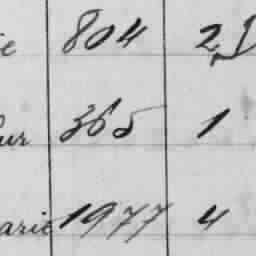 ie 804 2
ur 365 1
arie 1977 4